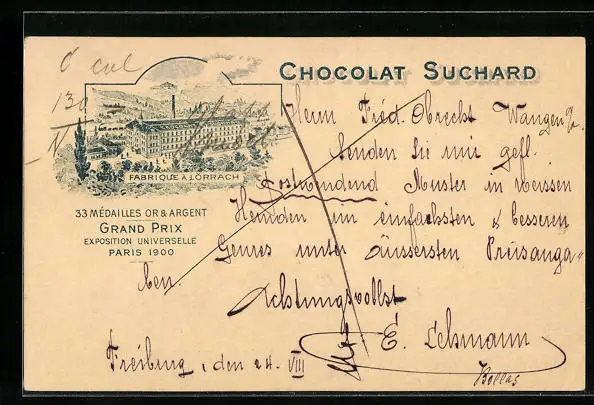 CHOCOLAT SUCHARD
FABRIQUE À LÖRRACH
33 MÉDAILLES OR & ARGENT
GRAND PRIX
EXPOSITION UNIVERSELLE
PARIS 1900
130
Herrn Fréd. Obrecht Wangen a/
Senden Sie mir gefl.
Postwendend Muster in weissen
Hemden im einfachsten & besseren
Genres unter äussersten Preisanga=
ben.
Achtungsvollst
E. Lehmann
Freiburg, den 24. VIII